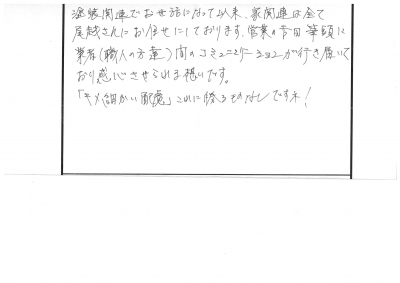 塗装関連でお世話になって以来、家関連は全て
尾越さんにお任せにしております。営業の吉田筆頭に
業者(職人の方達)間のコミュニケーションが行き届いて
おり感心させられる想いです。
「キメ細かい配慮」これに勝るものなしですネ!